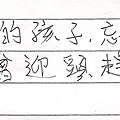 的孩子,忘
當迎頭趕